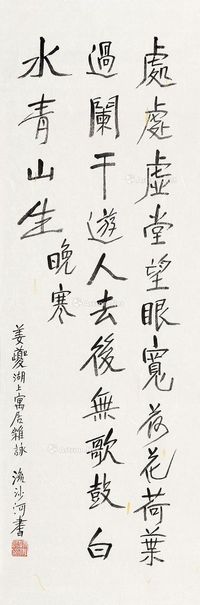 處處虛堂望眼寬荷花荷葉
過闌干遊人去後無歌鼓白
水青山生
晚寒
姜夔湖上寓居雜詠 流沙河書